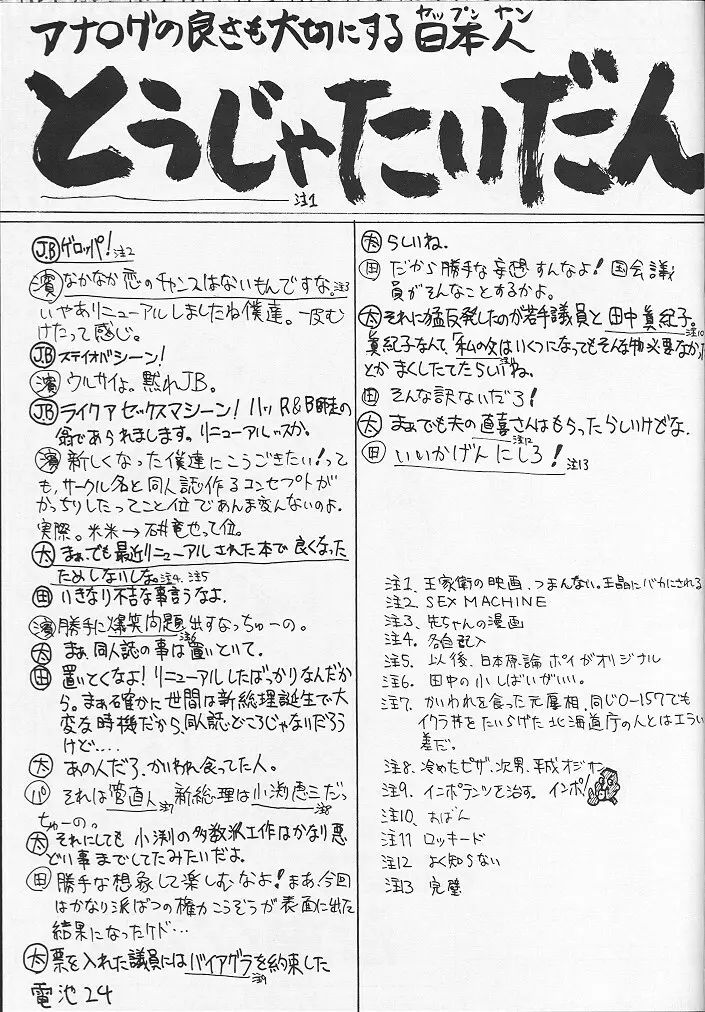 アナログの良さも大切にする 日本人
ヤップン ヤン
とうじゃたいだん
注1
J.B ゲロッパ! 注2
濱 なかなか恋のチャンスはないもんですな。注3
いやありニューアルしましたね僕達。一皮む
けたって感じ。
JB ステイオバシーン!
濱 ウルサイよ。黙れJB。
JB ライクア セックスマシーン! ハッ R&B師走の
翁であられまします。リニューアルッスか。
濱 新しくなった僕達にこうごきたい!って
も、サークル名と同人誌作るコンセプトが
かっちりしたってこと位であんま変んないのよ.
実際。米米→石井竜也って位。
太 まぁでも最近リニューアルされた本で良くなった
ためしないしな。注4. 注5
田 いきなり不吉な事言うなよ.
濱 勝手に爆笑問題出すなっちゅーの。
注6
太 まぁ同人誌の事は置いといて.
田 置いとくなよ!リニューアルしたばっかりなんだか
ら。まぁ確かに世間は新総理誕生で大
変な時機だから、同人誌どころじゃないだろう
けど....
太 あの人だろ、かいわれ食ってた人。
パ それは菅直人 新総理は小渕恵三だっ
注7 注8
ちゅーの。
太 それにしても 小渕の多数派工作はかなり悪
どい事までしてたみたいだよ.
田 勝手な想象して楽しむなよ!まあ、今回
はかなり派ばつの権力こうぞうが表面に出た
結果になったケド...
太 票を入れた議員にはバイアグラを約束した
注9
電池24
太 らしいね.
田 だから勝手な妄想すんなよ! 国会議
員がそんなことするかよ。
太 それに猛反発したのが若手議員と田中眞紀子。
注10
眞紀子なんて、「私の父はいくつになってもそんな物必要なかった
注11
とか まくしたててたらしいね。
田 そんな訳ないだろ!
太 まぁでも夫の直喜さんはもらったらしいけどな.
注12
田 いいかげんにしろ!
注13
注1. 王家衛の映画. つまんない。王晶にバカにされる
注2. SEX MACHINE
注3. 先ちゃんの漫画
注4. 各自記入
注5. 以後、日本原論 ポイがオリジナル
注6. 田中の小しばいがいい。
注7. かいわれを食った元厚相. 同じO-157でも
イクラ丼をたいらげた北海道庁の人とはエラい
差だ。
注8. 冷めたピザ、次男、平成オジサン
注9. インポテンツを治す。インポ!
注10. おばん
注11 ロッキード
注12 よく知らない
注13 完璧